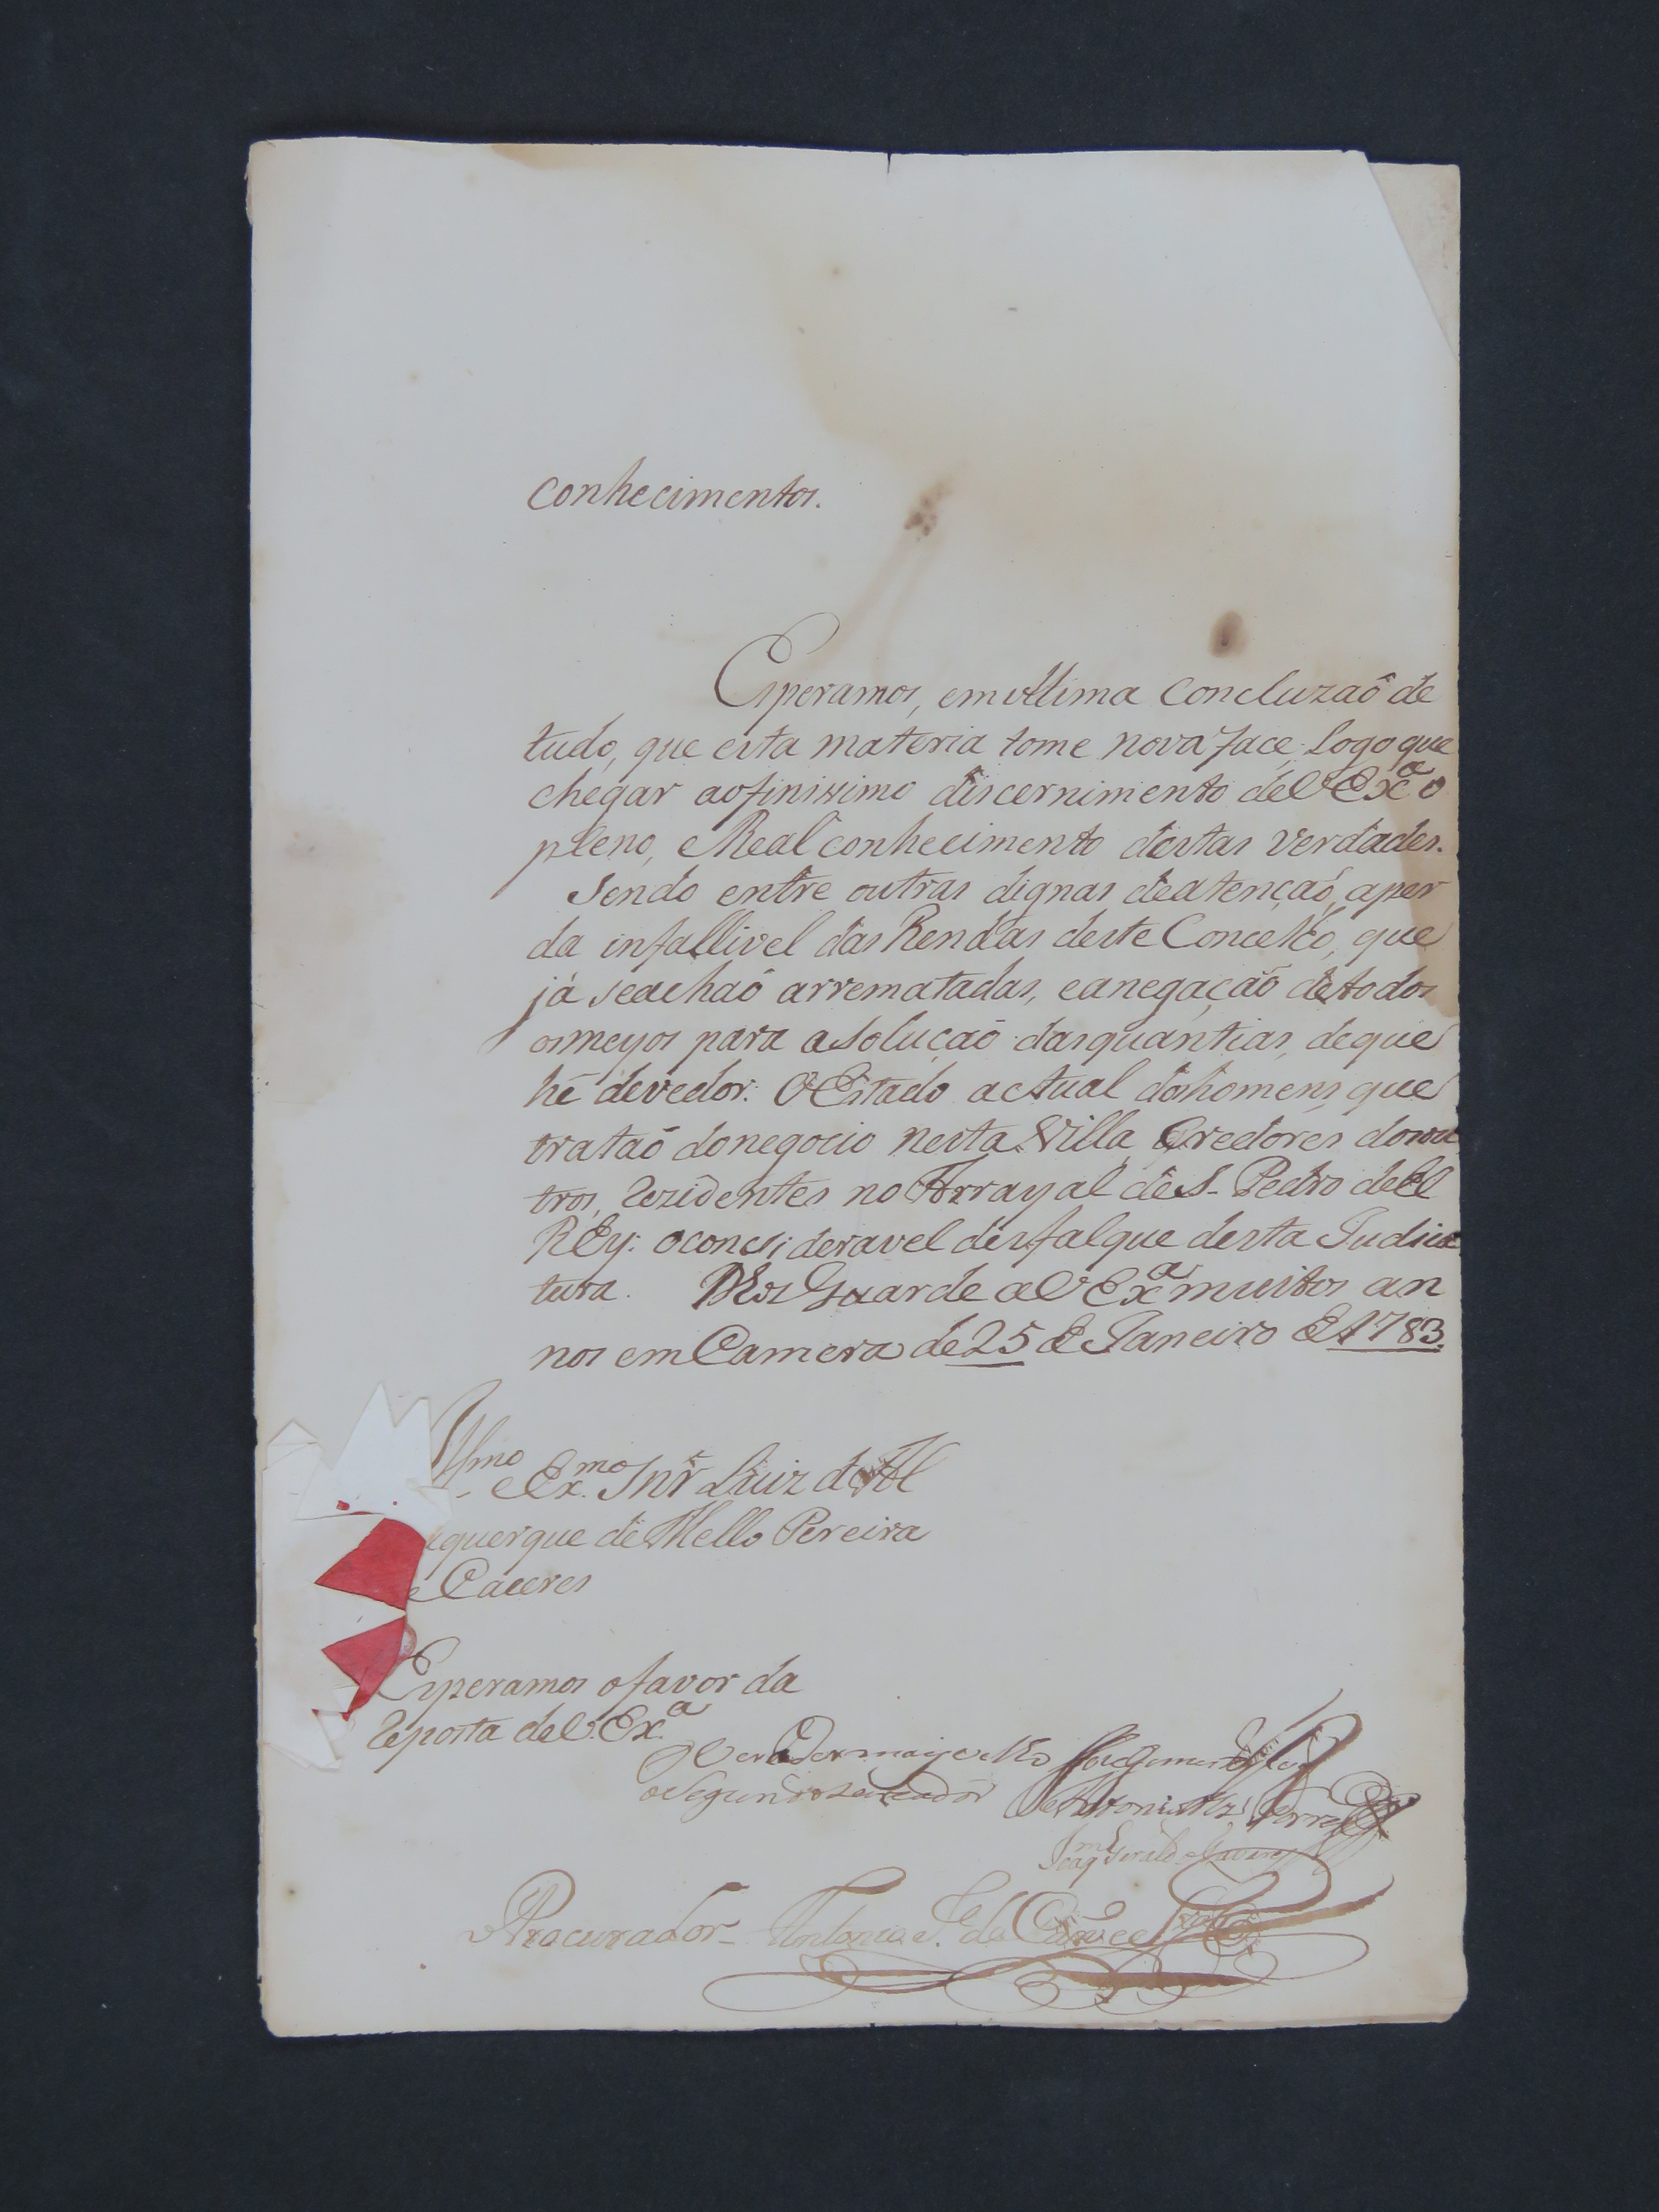 conhecimentos.
Esperamos, emultima concluzaõ de
tudo, que esta materia tome nova face, logo que
chegar aofinissimo discernimento deV Exª o
pleno, eReal conhecimento destas verdades.
Sendo entre outras dignas deatençaõ, aper
da infallivel das Rendas deste Concelho, que
já seachaõ arrematadas, eanegaçaõ detodos
osmeyos para asoluçaõ dasquantias, deque
hé devedor: OEstado actual doshomens, que
trataõ donegocio nesta Villa, Credores dosou
tros, rezidentes no Arrayal deS. Pedro deEl
REy: oconsideravel desfalque desta Judica
tura. Deos Guarde aV Exª muitos an
nos emCamera de 25 de Janeiro de 1783.
Illmo
e Exmo Snr Luiz deAl
querque de Mello Pereira
e Caceres
Esperamos ofavor da
reposta deV. Exª
OVereador mais velho
oSegundo Vereador Antonio
Joaqm
OProcurador Antonio da